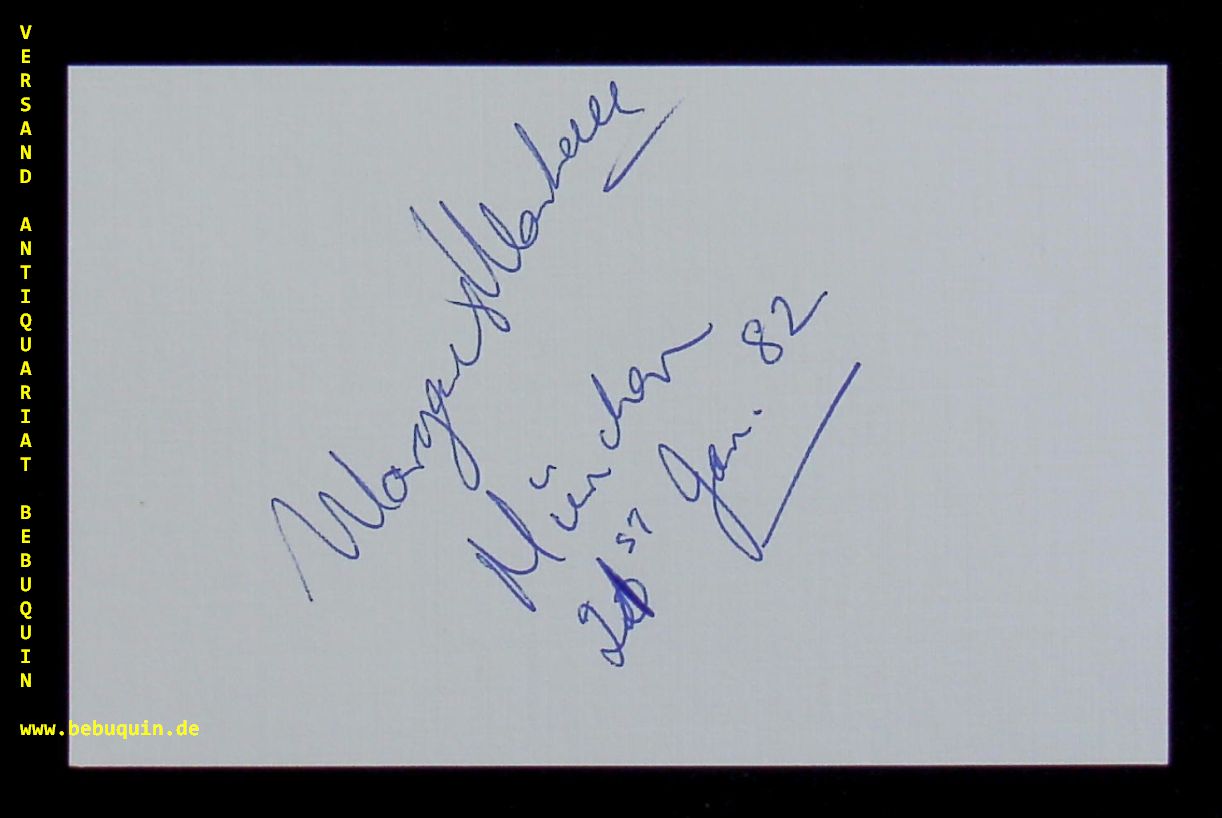 VERSAND ANTIQUARIAT BEBUQUIN
www.bebuquin.de
Margaret Marshall
München
21st Jan. 82